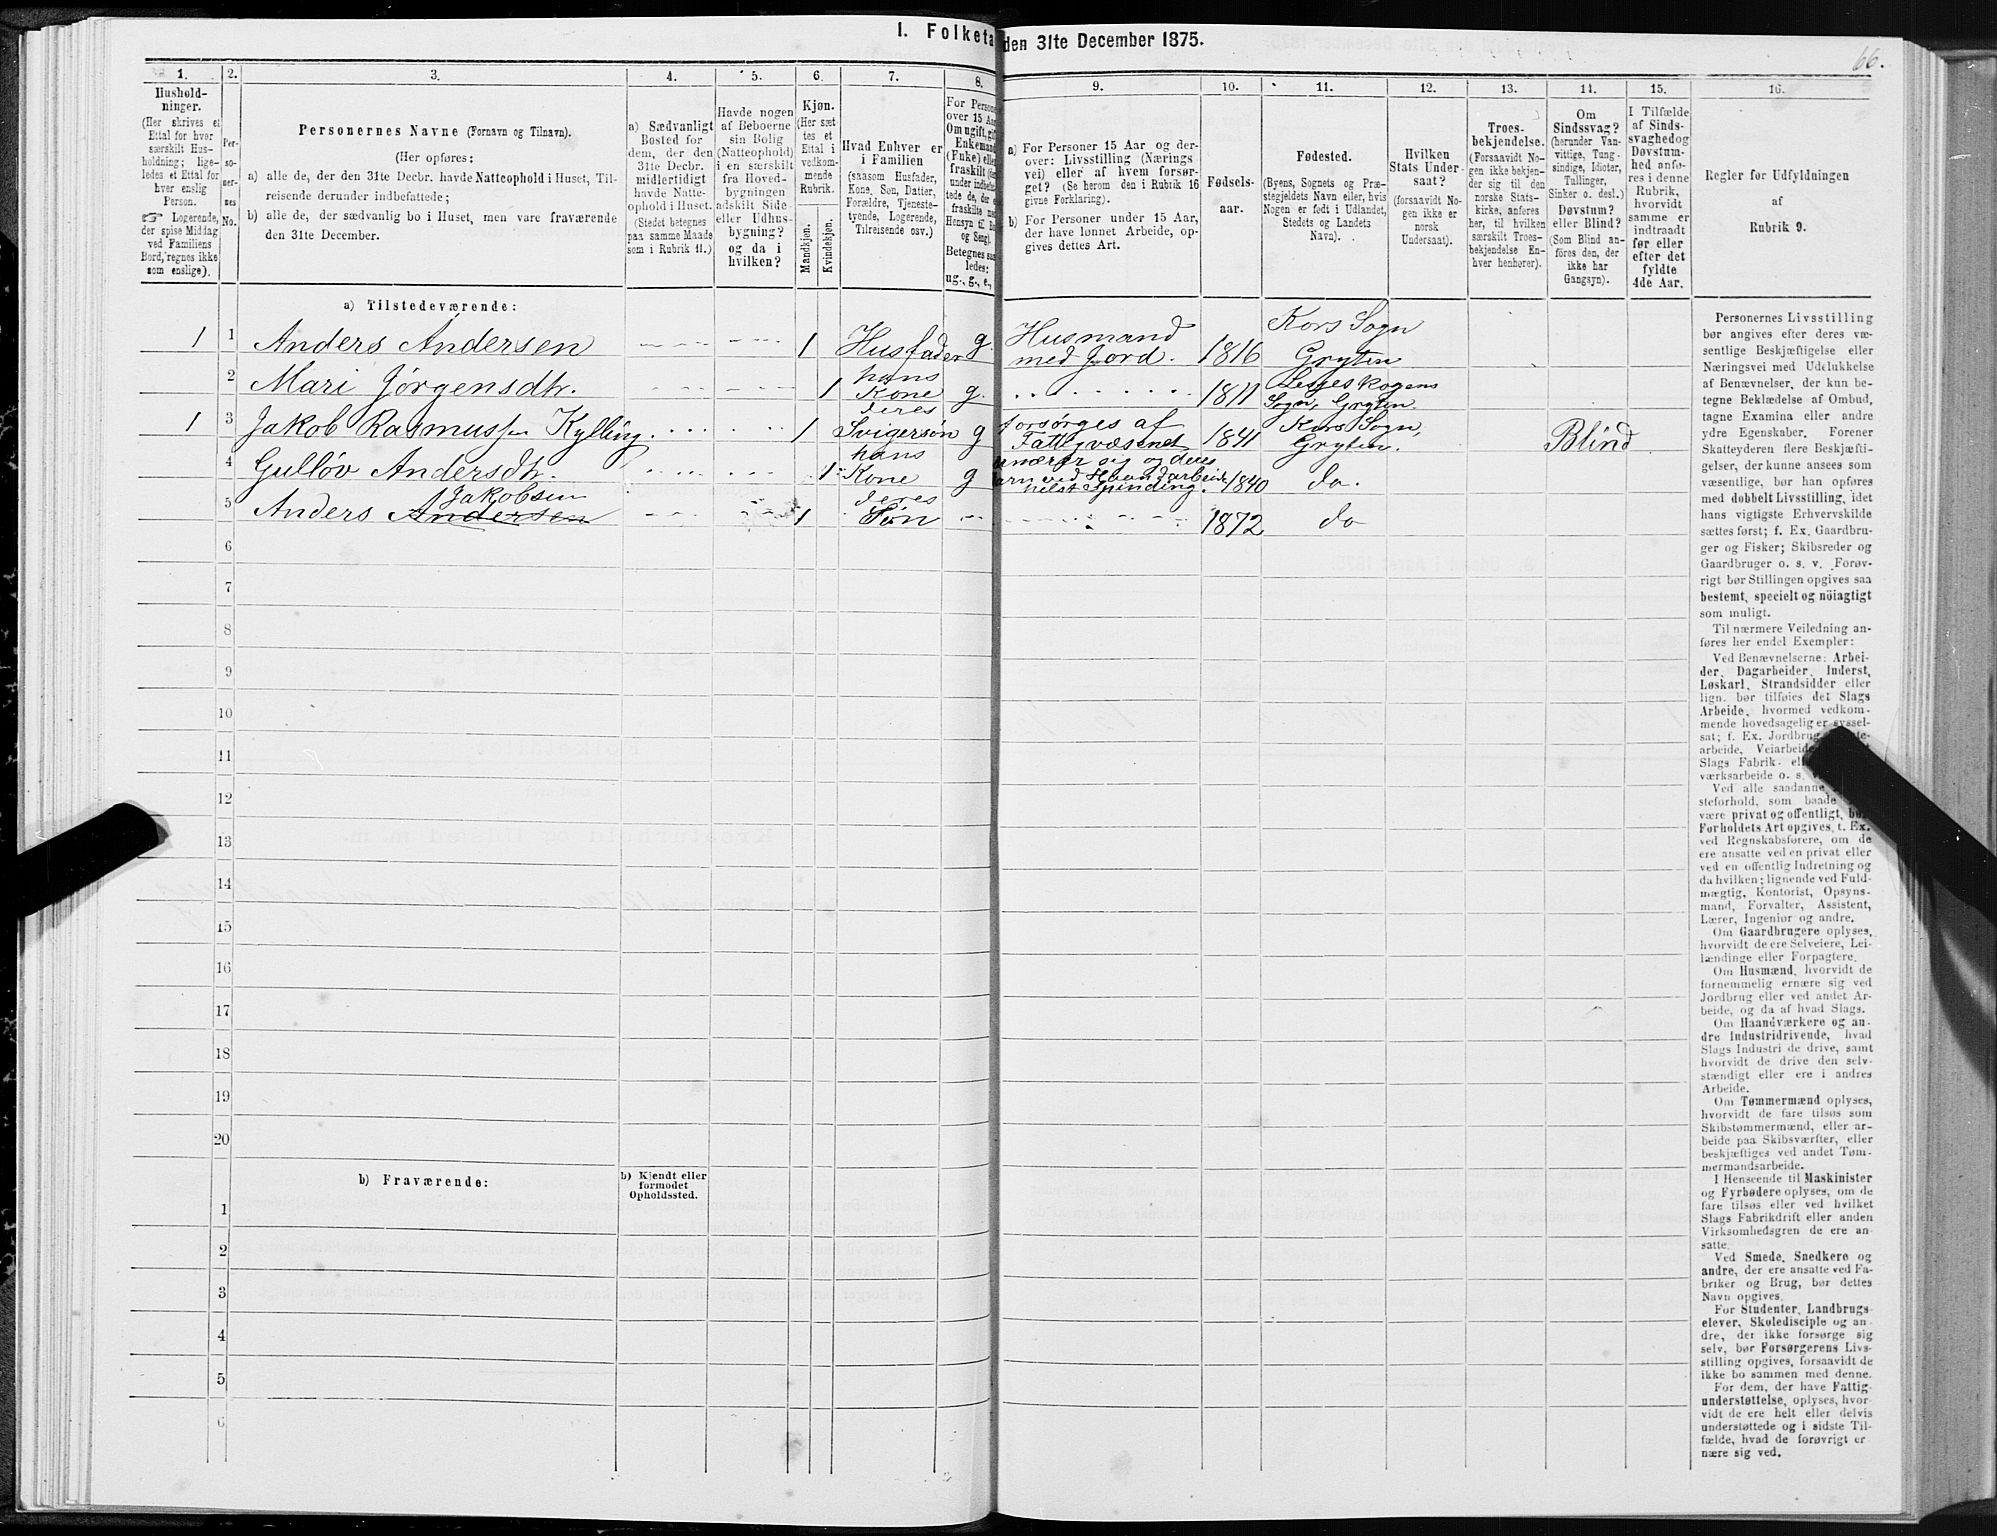 I. Folketæ
den 31te December 1875.
66.
1. 2. 3. 4. 5. 6. 7. 8. 9. 10. 11. 12. 13. 14. 15. 16.
Hushold-
ninger.
(Her skrives et
Ettal for hver
særskilt Hus-
holdning; lige-
ledes et Ettal for
hver enslig
Person.
☞ Logerende,
der spise Middag
ved Familiens
Bord, regnes ikke
som enslige).
Per-
so-
ner-
nes
No.
Personernes Navne (Fornavn og Tilnavn).
(Her opføres:
a) alle de, der den 31te Decbr. havde Natteophold i Huset, Til-
reisende derunder indbefattede;
b) alle de, der sædvanlig bo i Huset, men vare fraværende
den 31te December.
a) Sædvanligt
Bosted for
dem, der den
31te Decbr.
midlertidigt
havde Natte-
ophold i Huset.
(Stedet betegnes
paa samme Maade
som i Rubrik 11.)
Havde nogen
af Beboerne
sin Bolig
(Natteophold)
i en særskilt
fra Hoved-
bygningen
adskilt Side-
eller Udhus-
bygning?
og da i
hvilken?
Kjøn.
(Her sæt-
tes et
Ettal i
vedkom-
mende
Rubrik.
Mandkjøn.
Kvindekjøn.
Hvad Enhver er
i Familien
(saasom Husfader,
Kone, Søn, Datter,
Forældre, Tjeneste-
tyende, Logerende,
Tilreisende osv.)
For Persone
over 15 Aar
Om ugift, gif
Enkemand
(Enke) elle
fraskilt
under indbefat-
tede de, der e
fraskilte
Hensyn til Bo
og Seng).
Betegnes saa
ledes:
ug., g., e.,
a) For Personer 15 Aar og der-
over: Livsstilling (Nærings
vei) eller af hvem forsør-
get? (Se herom den i Rubrik 16
givne Forklaring).
b) For Personer under 15 Aar,
der have lønnet Arbeide, op-
gives dettes Art.
Fødsels-
aar.
Fødested.
(Byens, Sognets og Præ-
stegjeldets Navn eller, hvis
Nogen er født i Udlandet,
Stedets og Landets
Navn).
Hvilken
Stats Under-
saat?
(forsaavidt No-
gen ikke er
norsk
Undersaat).
Troes-
bekjendelse.
(Forsaavidt No-
gen ikke bekjen-
der sig til den
norske Stats-
kirke, anføres
her, til hvilken
særskilt Troes-
bekjendelse En-
hver henhører).
Om
Sindssvag?
(herunder Van-
vittige, Tung-
sindige, Idioter,
Tullinger,
Sinker o. desl.)
Døvstum?
eller Blind?
(Som Blind an-
føres den, der
ikke har
Gangsyn).
I Tilfælde
af Sinds-
svaghed og
Døvstum-
hed anfø-
res i denne
Rubrik,
hvorvidt
samme er
indtraadt
før eller
efter det
fyldte
4de Aar.
Regler for Udfyldningen
af
Rubrik 9.
a) Tilstedeværende:
1 1 Anders Andersen 1 Husfader g. Husmand med Jord. 1816 Kors Sogn Gryten
2 Mari Jørgensdtr. 1 hans Kone g. 1811 Lesjeskogens Sogn, Gryten.
1 3 Jakob Rasmussen Kylling 1 deres Svigersøn g forsørges af Fattigvæsenet 1841 Kors Sogn, Gryten. Blind
4 Gulløv Andersdtr. 1 hans Kone g ernærer sig og deres Barn ved Haandarbeide helst Spinding. 1840 do.
5 Anders Andersen Jakobsen 1 deres Søn 1872 do
6
7
8
9
10
11
12
13
14
15
16
17
18
19
20
b) Fraværende:
b) Kjendt eller
formodet
Opholdssted.
1
2
3
4
5
6
Personernes Livsstilling
bør angives efter deres væ-
sentlige Beskjæftigelse eller
Næringsvei med Udelukkelse
af Benævnelser, der kun be-
tegne Beklædelse af Ombud,
tagne Examina eller andre
ydre Egenskaber. Forener
Skatteyderen flere Beskjæfti-
gelser, der kunne ansees som
væsentlige, bør han opføres
med dobbelt Livsstilling, idet
hans vigtigste Erhvervskilde
sættes først; f. Ex. Gaardbru-
ger og Fisker; Skibsreder og
Gaardbruger o. s. v. Forøv-
rigt bør Stillingen opgives saa
bestemt, specielt og nöiagtigt
som muligt.
Til nærmere Veiledning an-
føres her endel Exempler:
Ved Benævnelserne: Arbei-
der, Dagarbeider, Inderst,
Løskarl, Strandsidder eller
lign. bør tilføies det Slags
Arbeide, hvormed vedkom-
mende hovedsagelig er syssel-
sat; f. Ex. Jordbrug
arbeide, Veiarbeide
Slags Fabrik- el
værksarbeide o. s.
Ved alle saadanne
steforhold, som baade
være privat og offentligt, bør
Forholdets Art opgives, t. Ex.
ved Regnskabsførere, om de
ere ansatte ved en privat eller
ved en offentlig Indretning og
da hvilken; lignende ved Fuld-
mægtig, Kontorist, Opsyns-
mand, Forvalter, Assistent,
Lærer, Ingeniør og andre.
Om Gaardbrugere oplyses,
hvorvidt de ere Selveiere, Lei-
lændinge eller Forpagtere.
Om Husmænd, hvorvidt de
fornemmelig ernære sig ved
Jordbrug eller ved andet Ar-
beide, og da af hvad Slags.
Om Haandværkere og an-
dre Industridrivende, hvad
Slags Industri de drive, samt
hvorvidt de drive den selv-
stændigt eller ere i andres
Arbeide.
Om Tømmermænd oplyses,
hvorvidt de fare tilsøs som
Skibstømmermænd, eller ar-
beide paa Skibsværfter, eller
beskjæftiges ved andet Tøm-
mermandsarbeide.
I Henseende til Maskinister
og Fyrbødere oplyses, om de
fare tilsøs eller ved hvilket
Slags Fabrikdrift eller anden
Virksomhedsgren de ere an-
satte.
Ved Smede, Snedkere og
andre, der ere ansatte ved Fa-
briker og Brug, bør dettes
Navn opgives.
For Studenter, Landbrugs-
elever, Skoledisciple og an-
dre, der ikke forsørge sig
selv, bør Forsørgerens Livs-
stilling opgives, forsaavidt de
ikke bo sammen med denne.
For dem, der have Fattig-
understøttelse, oplyses, hvor-
vidt de ere helt eller delvis
understøttede og i sidste Til-
fælde, hvad de forøvrigt er-
nære sig ved.